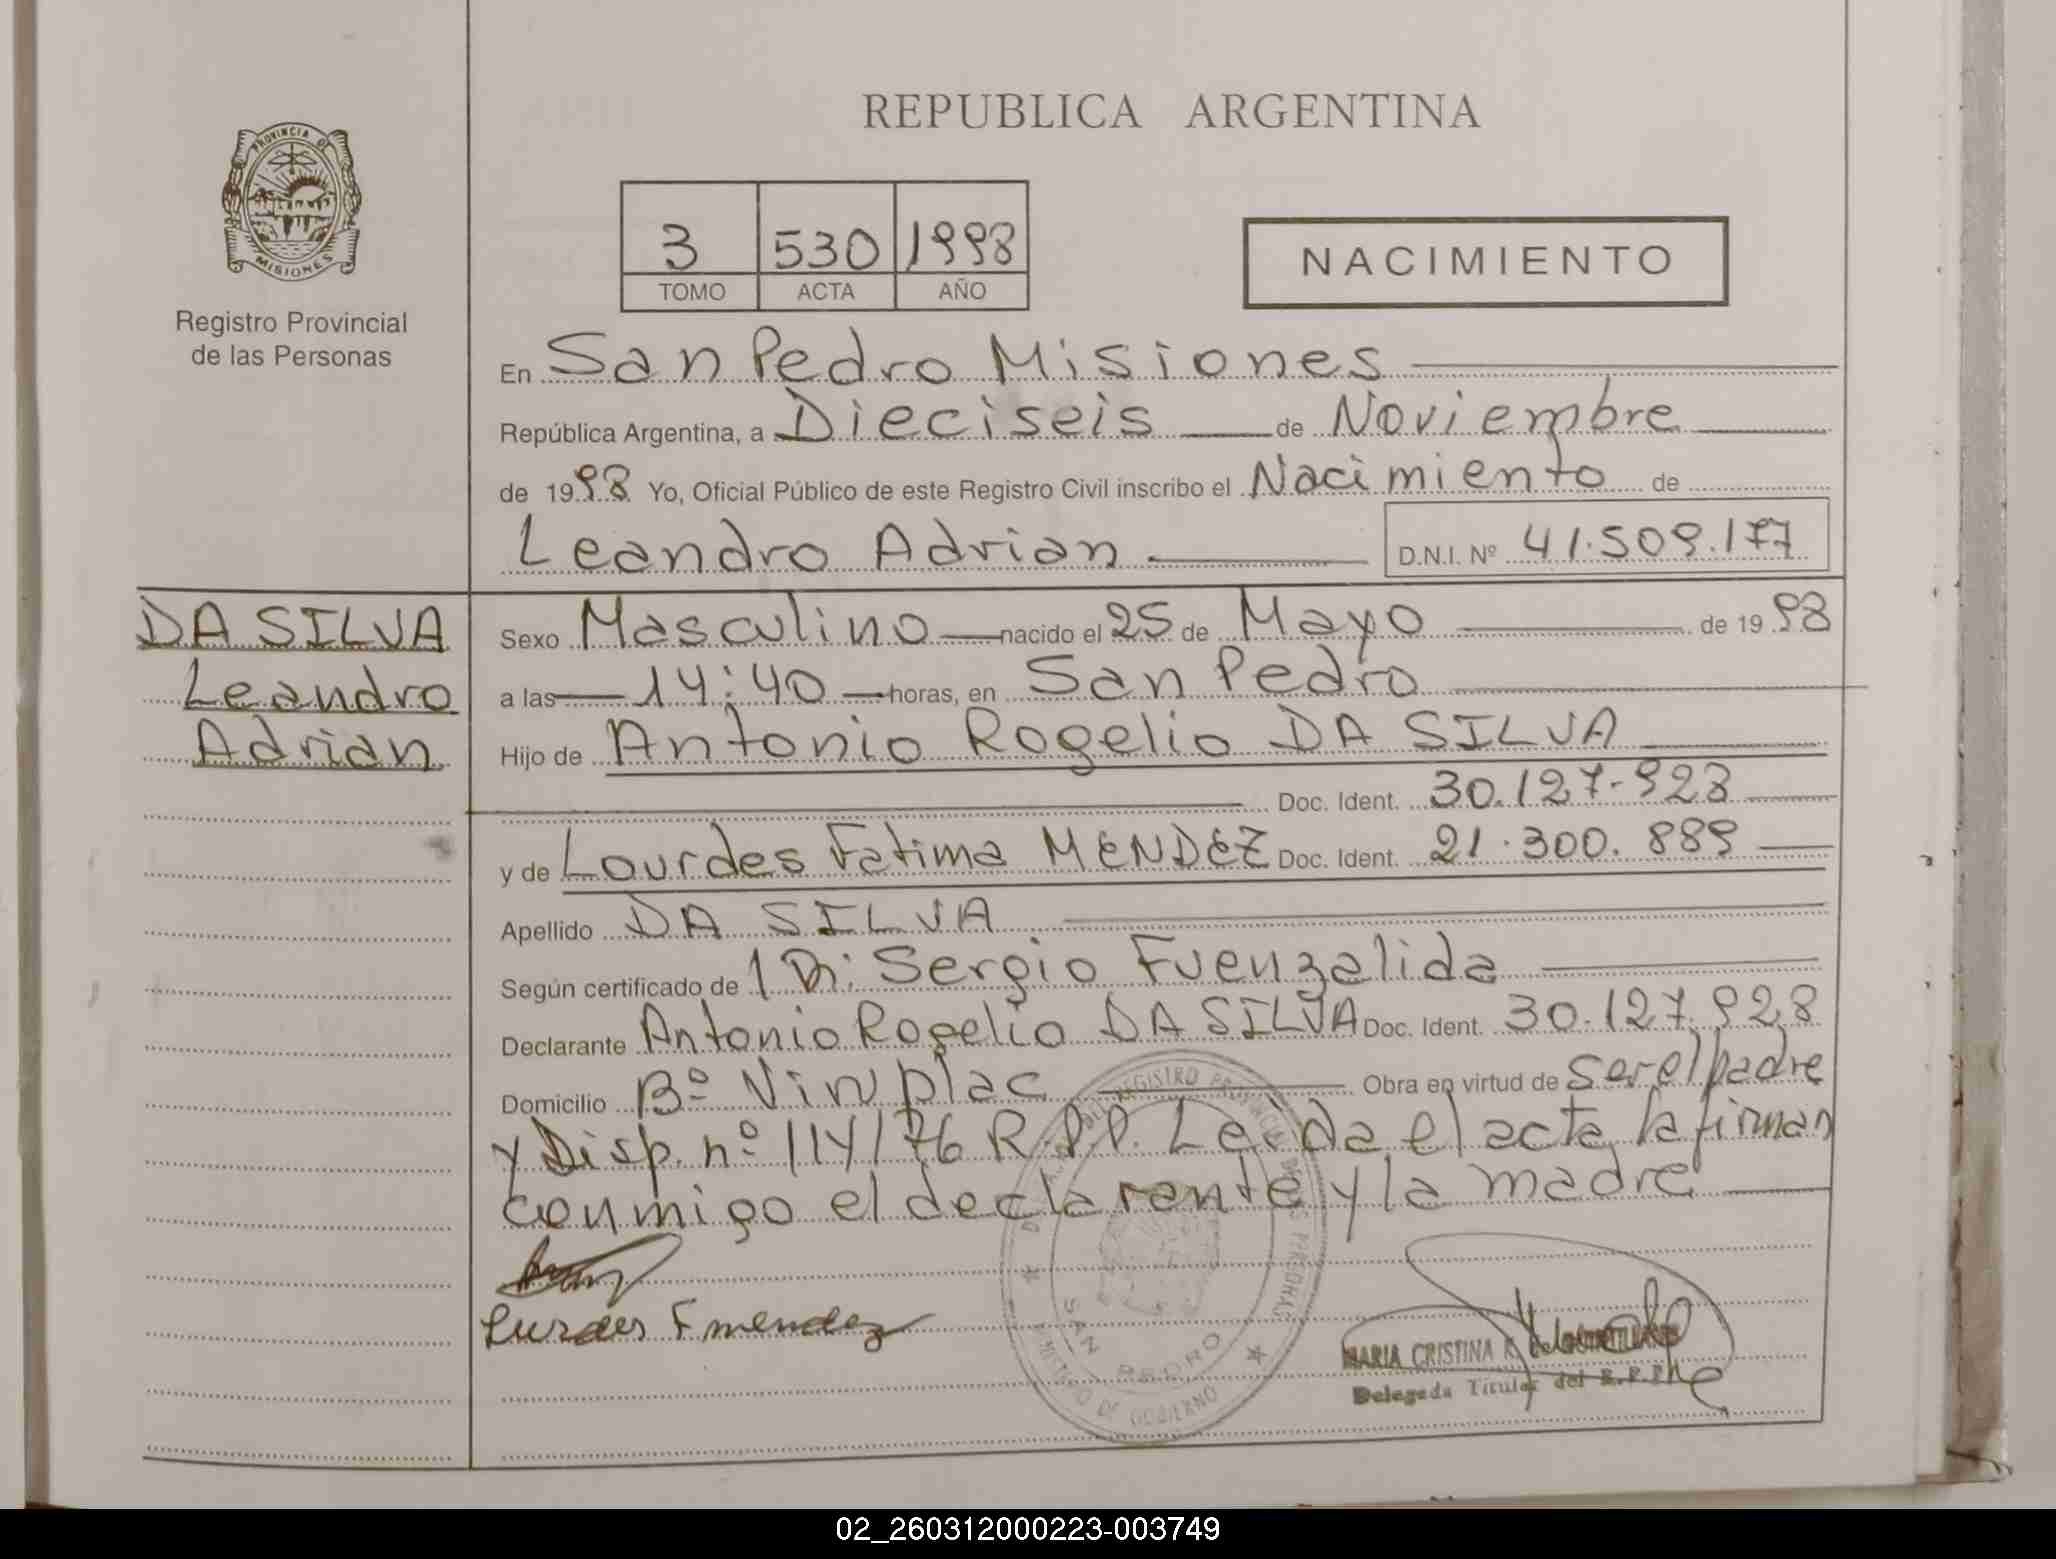 REPUBLICA ARGENTINA
PROVINCIA DE
MISIONES
Registro Provincial
de las Personas
3 530 1998
TOMO ACTA AÑO
NACIMIENTO
En San Pedro Misiones
República Argentina, a Dieciseis de Noviembre
de 1998 Yo, Oficial Público de este Registro Civil inscribo el Nacimiento de
Leandro Adrian D.N.I. Nº 41.509.177
DA SILVA
Leandro
Adrian
Sexo Masculino nacido el 25 de Mayo de 1998
a las 14:40 horas, en San Pedro
Hijo de Antonio Rogelio DA SILVA
Doc. Ident. 30.127.928
y de Lourdes Fatima MENDEZ Doc. Ident. 21.300.889
Apellido DA SILVA
Según certificado de Sergio Fuenzalida
Declarante Antonio Rogelio DA SILVA Doc. Ident. 30.127.928
Domicilio Bº Obra en virtud de ser el padre
y Disp. nº 114/76 R.P.P. Leida el acta la firman
conmigo el declarante y la madre
Lurdes F mendez
REGISTRO PROVINCIAL DE LAS PERSONAS
SAN PEDRO
MINISTERIO DE GOBIERNO
MARIA CRISTINA
Delegada Titular del R.P.P.
02_260312000223-003749